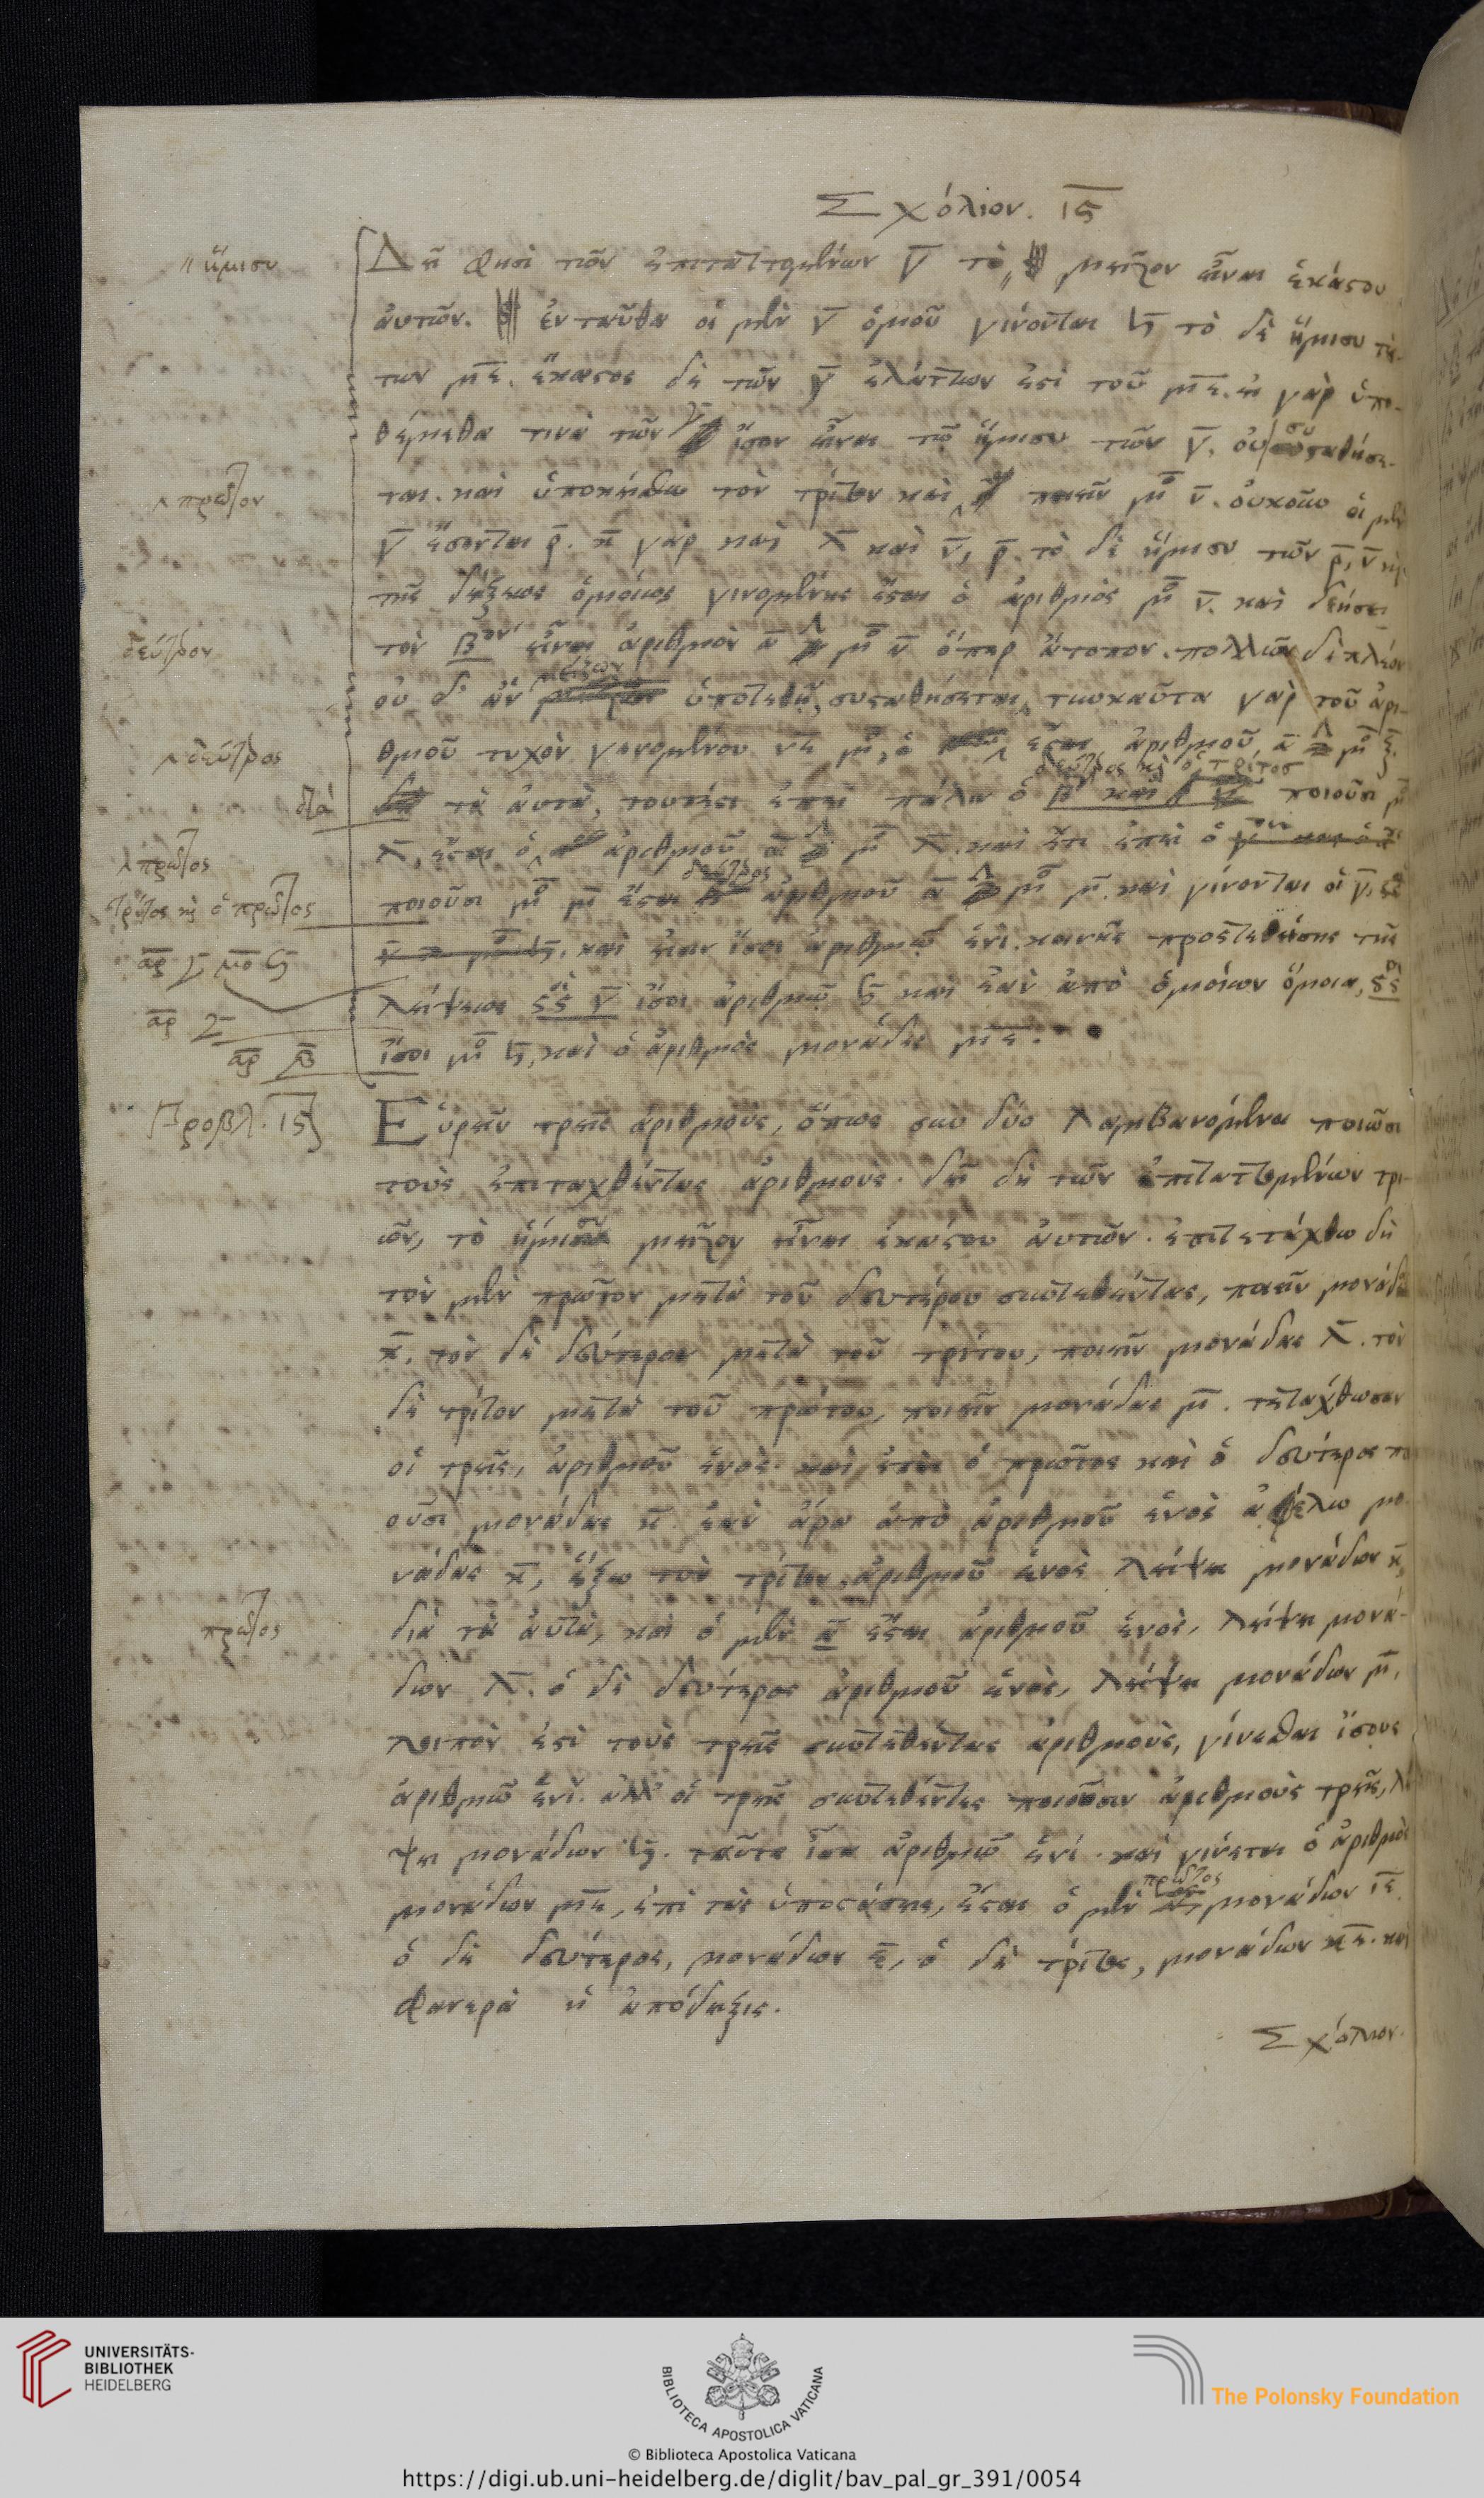 Σχόλιον. ις
Δεῖ φησὶ τῶν ἐπιταττομένων γ τὸ μεῖζον εἶναι ἑκάστου
ἥμισυ
αὐτῶν. ἐνταῦθα οἱ μὲν γ ὁμοῦ γίνονται ϟ τὸ δὲ ἥμισυ τού-
των με. ἕκαστος δὲ τῶν γ ἐλάττων ἐστὶ τοῦ με. εἰ γὰρ ὑπο-
θέμεθα τινὰ τῶν γ ἴσον εἶναι τῷ ἥμισυ τῶν γ, οὐ συσταθήσε-
ται. καὶ ὑποκείσθω τὸν τρίτον καὶ ποιεῖν μο ν. οὐκοῦν οἱ μὲν
πρῶτον
γ ἔσονται ρ. κ γὰρ καὶ λ καὶ ν, ρ. τὸ δὲ ἥμισυ τῶν ρ, ν
τῆς δείξεως ὁμοίως γινομένης ἔσται ὁ ἀριθμὸς μο ν. καὶ δεήσει
τὸν βον εἶναι ἀριθμὸν α μο ν ὅπερ ἄτοπον. πολλῶν δὲ πλέον
δεύτερον
οὐδ' ἂν μείζων ὑποτεθῇ, συσταθήσεται, τηνικαῦτα γὰρ τοῦ ἀρι-
θμοῦ τυχὸν γενομένου νε μο, ὁ ἔσται ἀριθμοῦ α μο ξ.
δεύτερος
διὰ
τὰ αὐτὰ, τουτέστι ἐπεὶ πάλιν ὁ δεύτερος καὶ ὁ τρίτος ποιοῦσι μο
λ, ἔσται ὁ ἀριθμοῦ α μο λ. καὶ ἔτι ἐπεὶ ὁ
πρῶτος
τρίτος καὶ ὁ πρῶτος
ποιοῦσι μο μ ἔσται δεύτερος ἀριθμοῦ α μο μ. καὶ γίνονται οἱ γ,
αρ γ μο ϟ
ϟ. καὶ εἰσιν ἴσοι ἀριθμῷ ἑνί. κοινῆς προστεθείσης τῆς
λείψεως ϛοὶ γ ἴσοι ἀριθμῷ ϟ καὶ ἐὰν ἀπὸ ὁμοίων ὅμοια, ϛοὶ
αρ γ
αρ β
ἴσοι μο ϟ, καὶ ὁ ἀριθμὸς μονάδες με.
Προβλ. ις
Εὑρεῖν τρεῖς ἀριθμοὺς, ὅπως σὺν δύο λαμβανόμενοι ποιῶσι
τοὺς ἐπιταχθέντας ἀριθμούς. δεῖ δὴ τῶν ἐπιταττομένων τρι-
ῶν, τὸ ἥμισυ μεῖζον εἶναι ἑκάστου αὐτῶν. ἐπιτετάχθω δὴ
τὸν μὲν πρῶτον μετὰ τοῦ δευτέρου συντεθέντας, ποιεῖν μονάδας
κ. τὸν δὲ δεύτερον μετὰ τοῦ τρίτου, ποιεῖν μονάδας λ. τὸν
δὲ τρίτον μετὰ τοῦ πρώτου, ποιεῖν μονάδας μ. τετάχθωσαν
οἱ τρεῖς, ἀριθμοῦ ἑνός. καὶ ἐπεὶ ὁ πρῶτος καὶ ὁ δεύτερος ποι
οῦσι μονάδας κ. ἐὰν ἄρα ἀπὸ ἀριθμοῦ ἑνὸς ἀφέλω μο
νάδας κ, ἕξω τὸν τρίτον, ἀριθμοῦ ἑνὸς λείψει μονάδων κ,
διὰ τὰ αὐτὰ, καὶ ὁ μὲν α ἔσται ἀριθμοῦ ἑνὸς, λείψει μονά-
πρῶτος
δων λ. ὁ δὲ δεύτερος ἀριθμοῦ ἑνὸς, λείψει μονάδων μ,
λοιπόν ἐστὶ τοὺς τρεῖς συντεθέντας ἀριθμοὺς, γίνεσθαι ἴσους
ἀριθμῷ ἑνί. ἀλλ' οἱ τρεῖς συντεθέντες ποιοῦσιν ἀριθμοὺς τρεῖς, λεί
ψει μονάδων ϟ. ταῦτα ἴσα ἀριθμῷ ἑνί. καὶ γίνεται ὁ ἀριθμὸς
μονάδων με, ἐπὶ τὰς ὑποστάσεις, ἔσται ὁ μὲν πρῶτος μονάδων ιε.
ὁ δὲ δεύτερος, μονάδων ε, ὁ δὲ τρίτος, μονάδων κε. καὶ
φανερὰ ἡ ἀπόδειξις.
Σχόλιον.
UNIVERSITÄTS-
BIBLIOTHEK
HEIDELBERG
BIBLIOTECA APOSTOLICA VATICANA
The Polonsky Foundation
© Biblioteca Apostolica Vaticana
https://digi.ub.uni-heidelberg.de/diglit/bav_pal_gr_391/0054